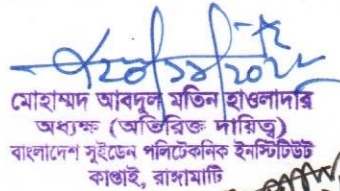 ২০/১১/২০২৮
মোহাম্মদ আবদুল মতিন হাওলাদার
অধ্যক্ষ (অতিরিক্ত দায়িত্ব)
বাংলাদেশ সুইডেন পলিটেকনিক ইনস্টিটিউট
কাপ্তাই, রাঙ্গামাটি